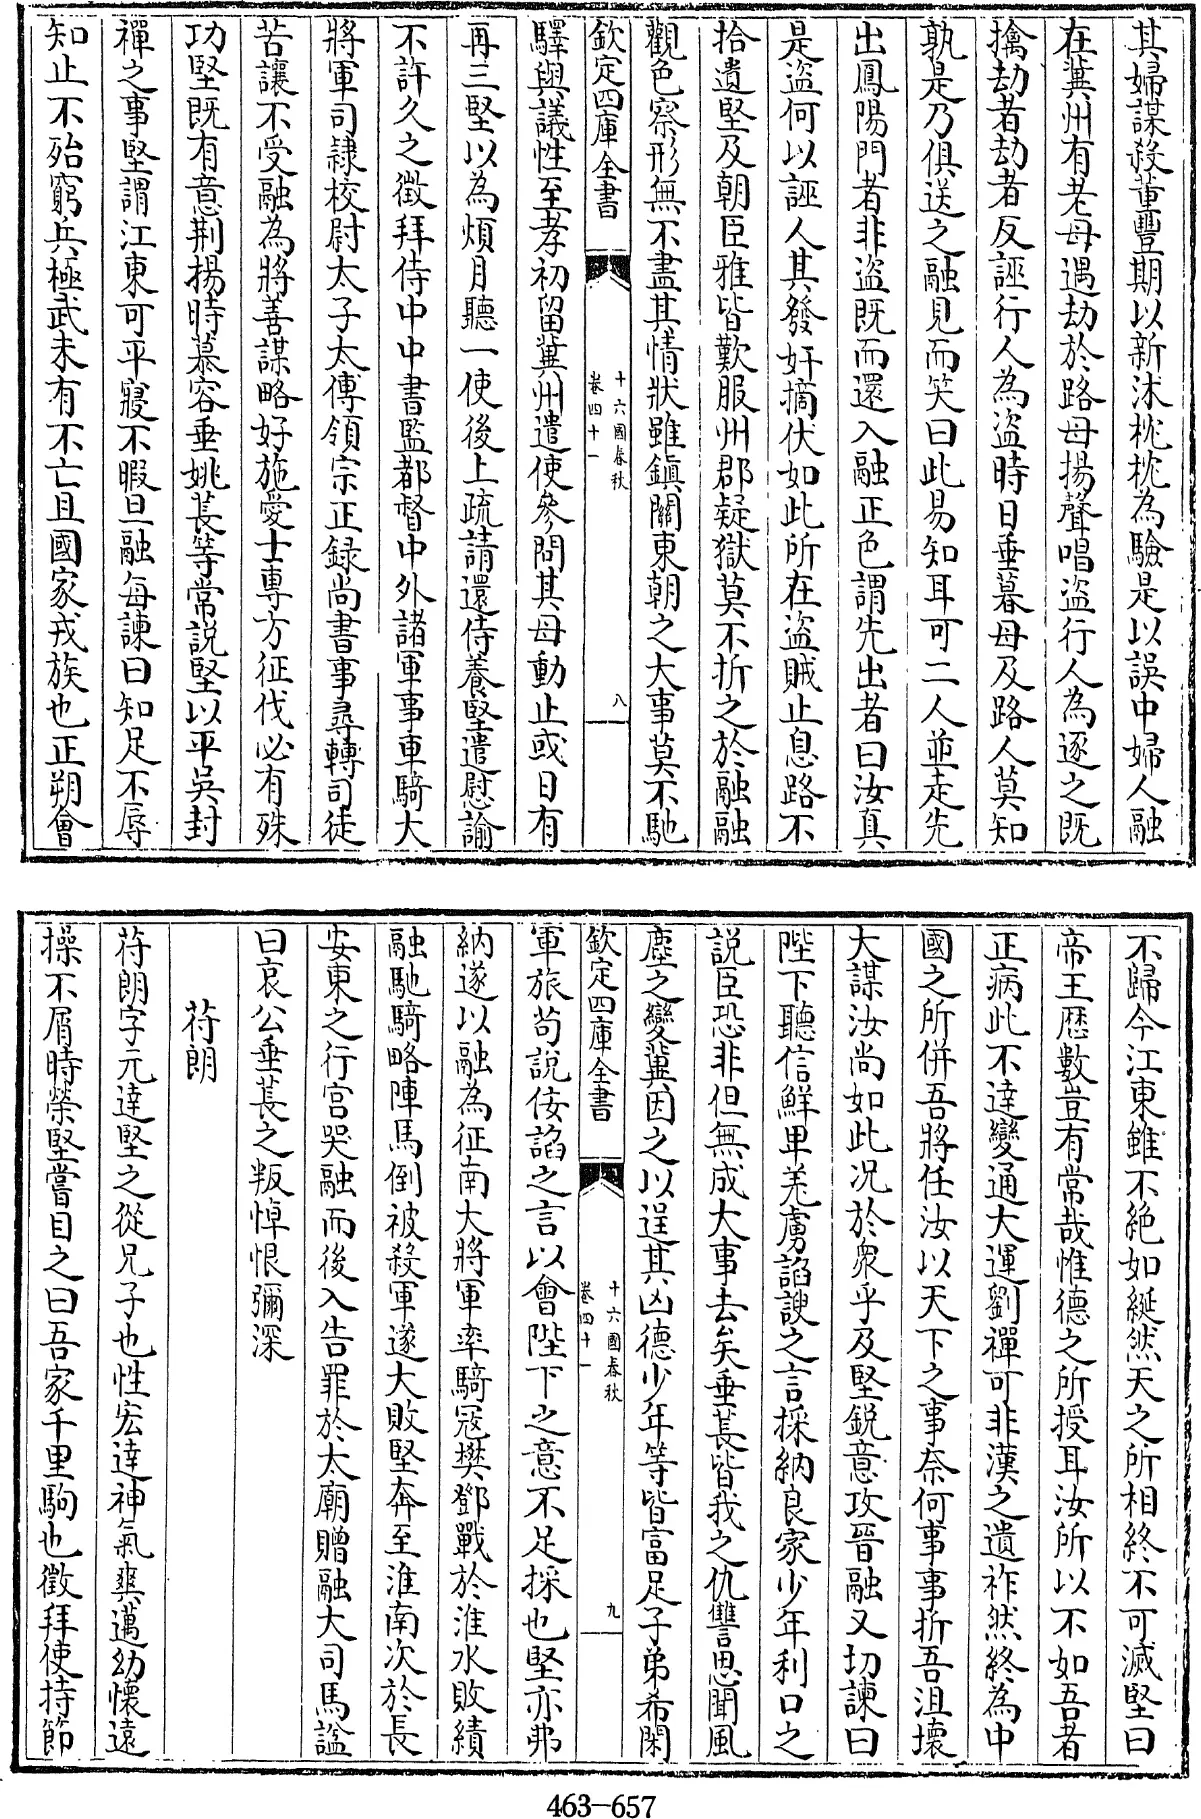 其婦謀殺董豐期以新沐枕枕為驗是以誤中婦人融
在冀州有老母遇劫於路母揚聲唱盜行人為逐之既
擒劫者劫者反誣行人為盜時日垂暮母及路人莫知
孰是乃俱送之融見而笑曰此易知耳可二人並走先
出鳳陽門者非盜既而還入融正色謂先出者曰汝真
是盜何以誣人其發奸摘伏如此所在盜賊止息路不
拾遺堅及朝臣雅皆歎服州郡疑獄莫不折之於融融
觀色察形無不盡其情狀雖鎮關東朝之大事莫不馳
欽定四庫全書
十六國春秋
卷四十一
八
驛與議性至孝初留冀州遣使參問其母動止或日有
再三堅以為煩月聽一使後上疏請還侍養堅遣慰諭
不許久之徵拜侍中中書監都督中外諸軍事車騎大
將軍司隸校尉太子太傅領宗正録尚書事尋轉司徒
苦讓不受融為將善謀略好施愛士專方征伐必有殊
功堅既有意荆揚時慕容垂姚萇等常説堅以平吳封
禪之事堅謂江東可平寢不暇旦融每諫曰知足不辱
知止不殆窮兵極武未有不亡且國家戎族也正朔會
不歸今江東雖不絶如綖然天之所相終不可滅堅曰
帝王歷數豈有常哉惟德之所授耳汝所以不如吾者
正病此不達變通大運劉禪可非漢之遺祚然終為中
國之所併吾將任汝以天下之事奈何事事折吾沮壞
大謀汝尚如此况於衆乎及堅鋭意攻晉融又切諫曰
陛下聽信鮮卑羌虜諂諛之言採納良家少年利口之
説臣恐非但無成大事去矣垂萇皆我之仇讐思聞風
塵之變冀因之以逞其凶德少年等皆富足子弟希閑
欽定四庫全書
十六國春秋
卷四十一
九
軍旅茍説佞諂之言以會陛下之意不足採也堅亦弗
納遂以融為征南大將軍率騎冦樊鄧戰於淮水敗績
融馳騎略陣馬倒被殺軍遂大敗堅奔至淮南次於長
安東之行宫哭融而後入告罪於太廟贈融大司馬諡
曰哀公垂萇之叛悼恨彌深
苻朗
苻朗字元達堅之從兄子也性宏達神氣爽邁幼懷遠
操不屑時榮堅嘗目之曰吾家千里駒也徵拜使持節
463-657